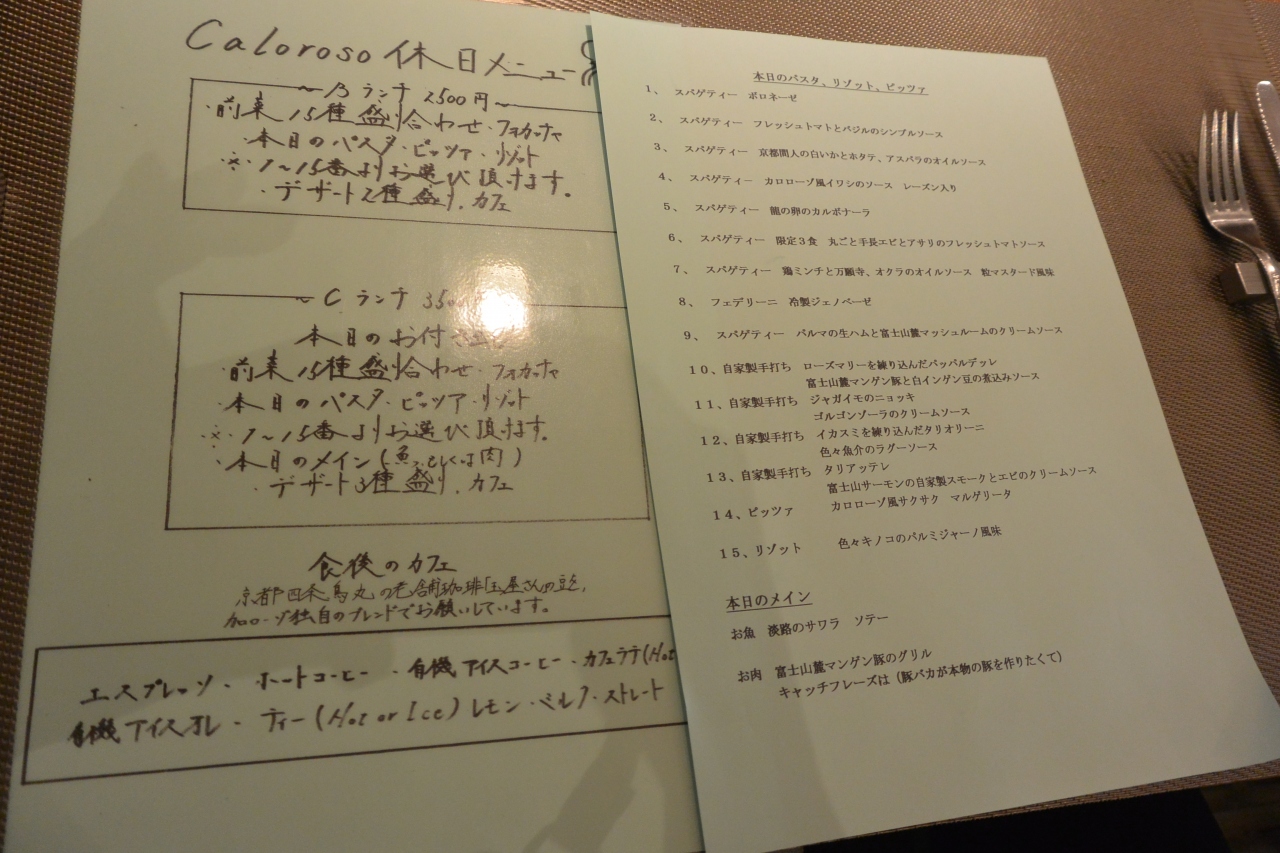 Caloroso 休日メニュー
〜Bランチ 2500円〜
・前菜15種盛り合わせ・フォカッチャ
・本日のパスタ・ピッツァ・リゾット
※1〜15番よりお選び頂けます。
・デザート2種盛り・カフェ
〜Cランチ 350
本日のお付き
・前菜15種盛り合わせ・フォカッチャ
・本日のパスタ・ピッツァ・リゾット
※1〜15番よりお選び頂けます。
・本日のメイン(魚もしくは肉)
・デザート3種盛り・カフェ
食後のカフェ
京都四条烏丸の老舗珈琲 玉屋さんの豆を、
カロローゾ独自のブレンドでお願いしています。
エスプレッソ・ホットコーヒー・有機アイスコーヒー・カフェラテ(Hot
有機アイスオレ・ティー(Hot or Ice)レモン・ミルク・ストレート
本日のパスタ、リゾット、ピッツァ
1、スパゲティー ボロネーゼ
2、スパゲティー フレッシュトマトとバジルのシンプルソース
3、スパゲティー 京都間人の白いかとホタテ、アスパラのオイルソース
4、スパゲティー カロローゾ風イワシのソース レーズン入り
5、スパゲティー 龍の卵のカルボナーラ
6、スパゲティー 限定3食 丸ごと手長エビとアサリのフレッシュトマトソース
7、スパゲティー 鶏ミンチと万願寺、オクラのオイルソース 粒マスタード風味
8、フェデリーニ 冷製ジェノベーゼ
9、スパゲティー パルマの生ハムと富士山麓マッシュルームのクリームソース
10、自家製手打ち ローズマリーを練り込んだパッパルデッレ
富士山麓マンゲン豚と白インゲン豆の煮込みソース
11、自家製手打ち ジャガイモのニョッキ
ゴルゴンゾーラのクリームソース
12、自家製手打ち イカスミを練り込んだタリオリーニ
色々魚介のラグーソース
13、自家製手打ち タリアッテレ
富士山サーモンの自家製スモークとエビのクリームソース
14、ピッツァ カロローゾ風サクサク マルゲリータ
15、リゾット 色々キノコのパルミジャーノ風味
本日のメイン
お魚 淡路のサワラ ソテー
お肉 富士山麓マンゲン豚のグリル
キャッチフレーズは(豚バカが本物の豚を作りたくて)